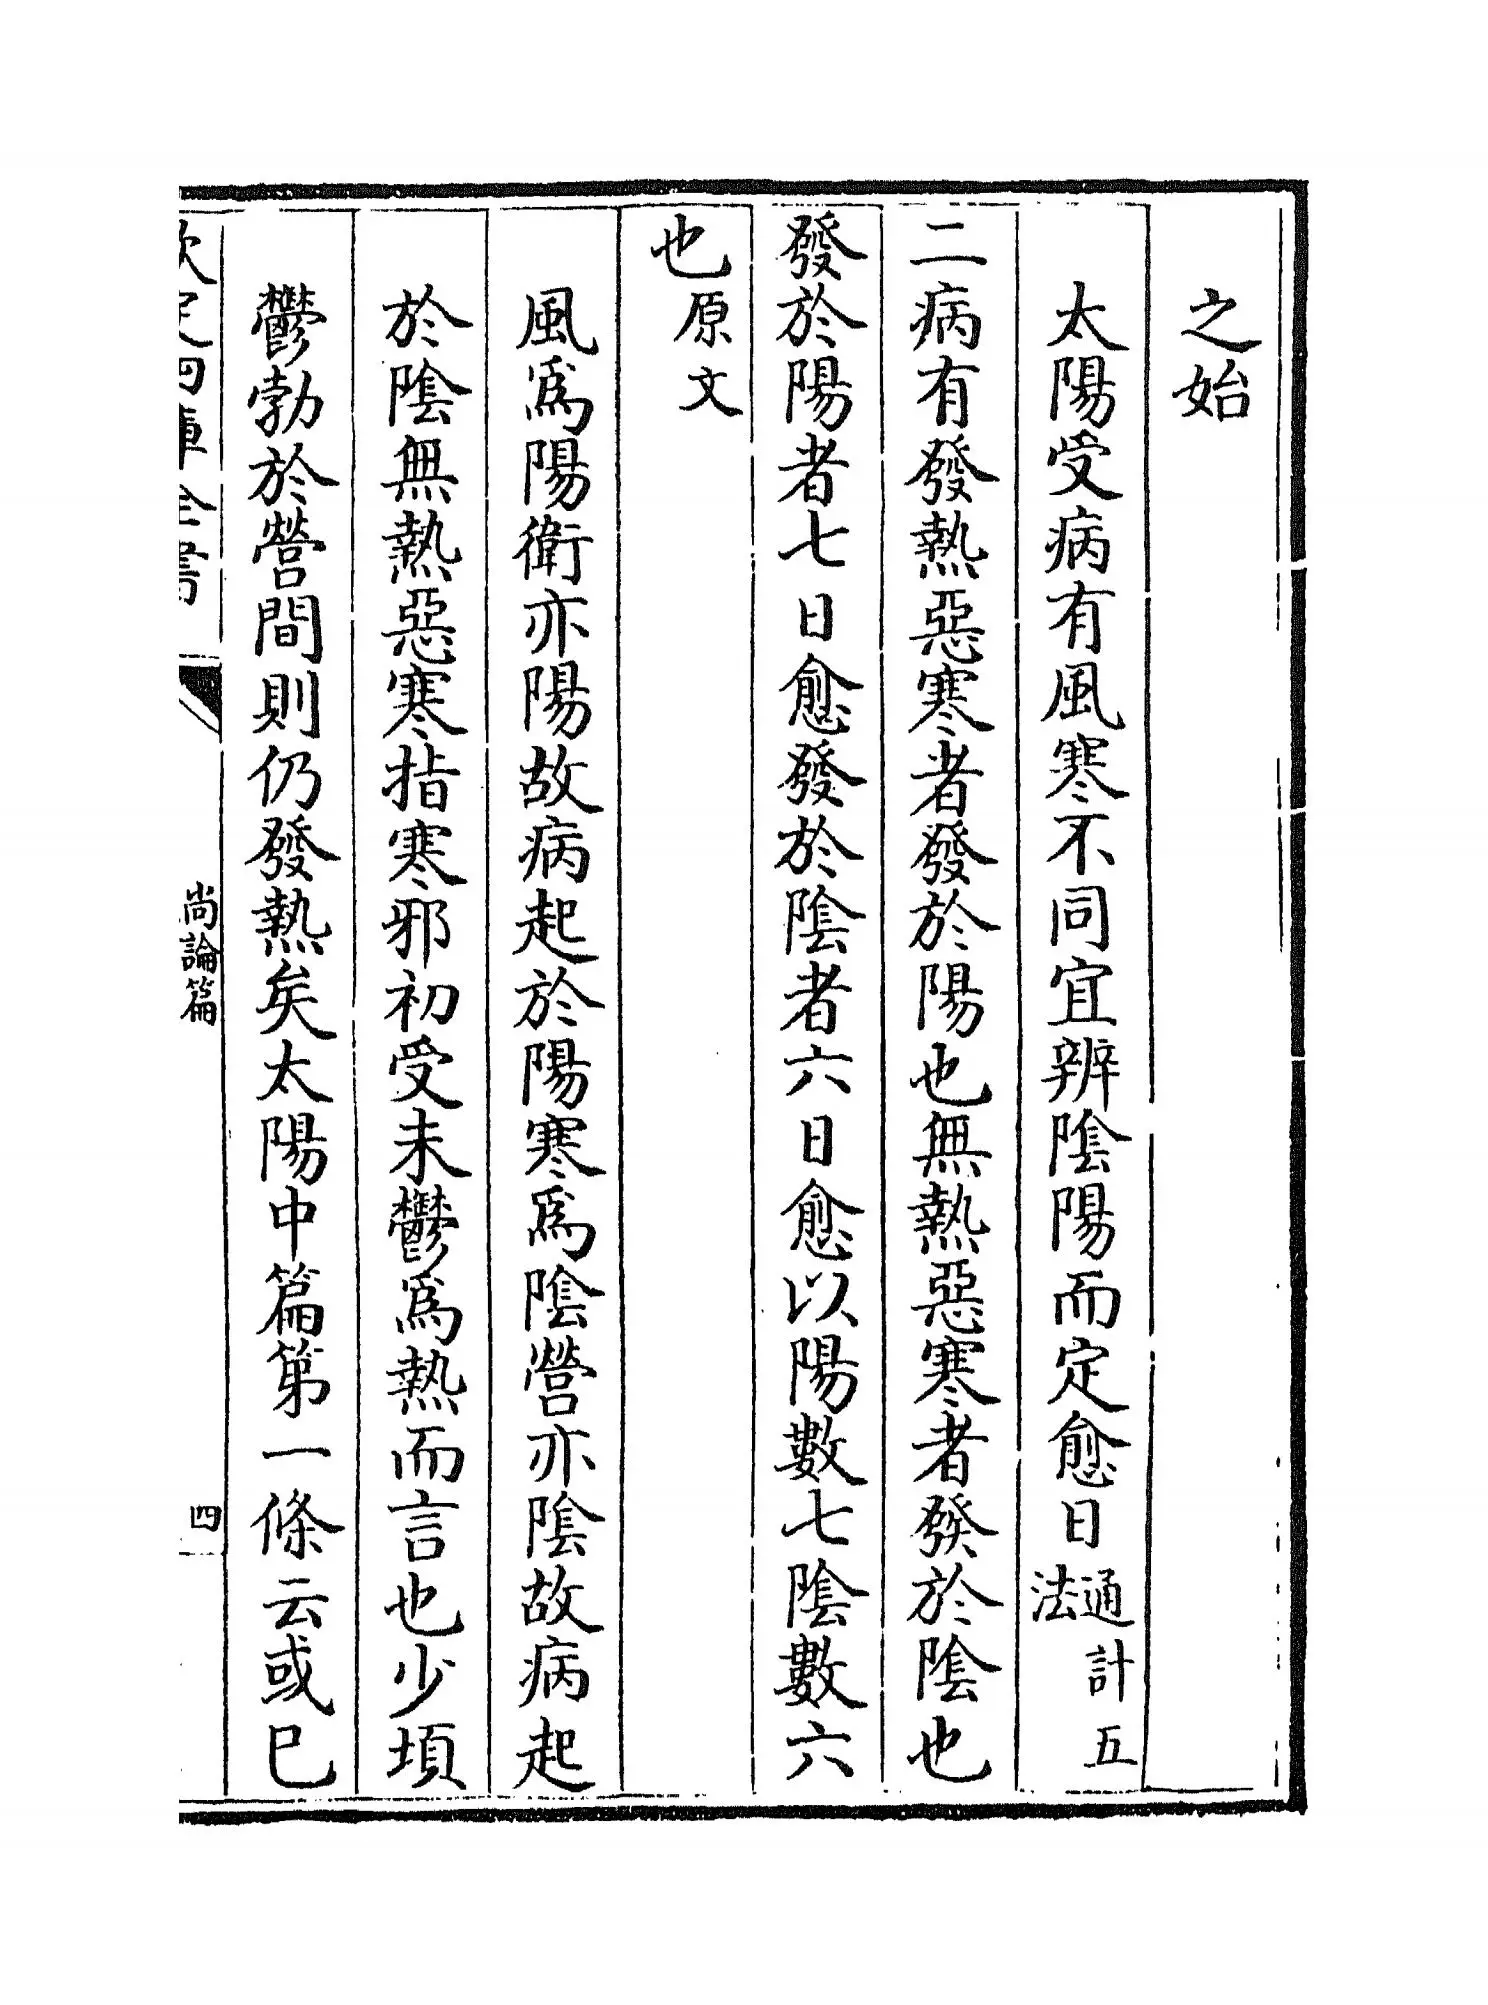 之始
太陽受病有風寒不同宜辨陰陽而定愈日通計五法
二病有發熱惡寒者發於陽也無熱惡寒者發於陰也
發於陽者七日愈發於陰者六日愈以陽數七陰數六
也原文
風爲陽衛亦陽故病起於陽寒爲陰營亦陰故病起
於陰無熱惡寒指寒邪初受未鬱爲熱而言也少頃
鬱勃於營間則仍發熱矣太陽中篇第一條云或已
欽定四庫全書
尚論篇
四